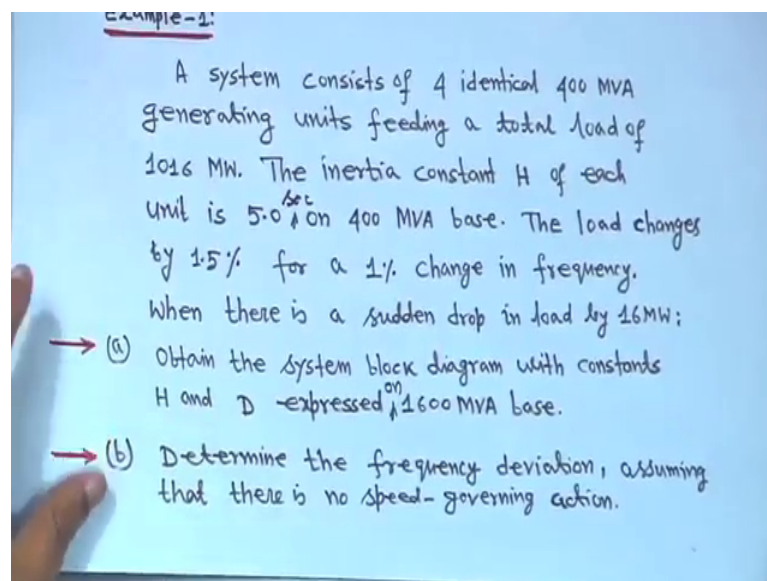 Example-1:
A system consists of 4 identical 400 MVA
generating units feeding a total load of
1016 MW. The inertia constant H of each
unit is 5.0 sec on 400 MVA base. The load changes
by 1.5% for a 1% change in frequency.
When there is a sudden drop in load by 16MW:
(a) Obtain the system block diagram with constants
H and D expressed on 1600 MVA base.
(b) Determine the frequency deviation, assuming
that there is no speed-governing action.